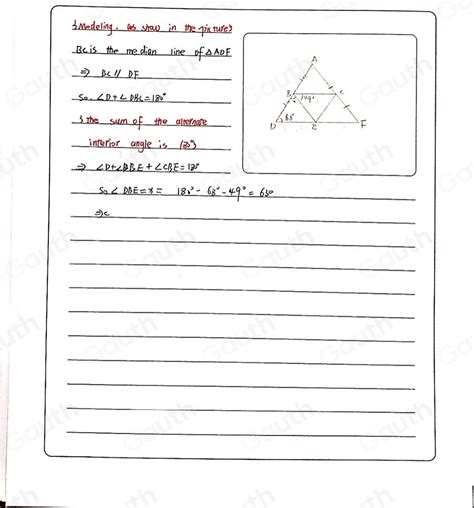 {Modeling, as show in the picture}
BC is the median line of △ADF
⇒ BC // DF
So. ∠D+∠DBC=180°
{the sum of the alternate
interior angle is 180°}
⇒ ∠D+∠DBE+∠CBE=180°
So ∠DBE=x= 180°-68°-49°=63°
⇒c
A
B
C
49°
68°
D
E
F
Gauth